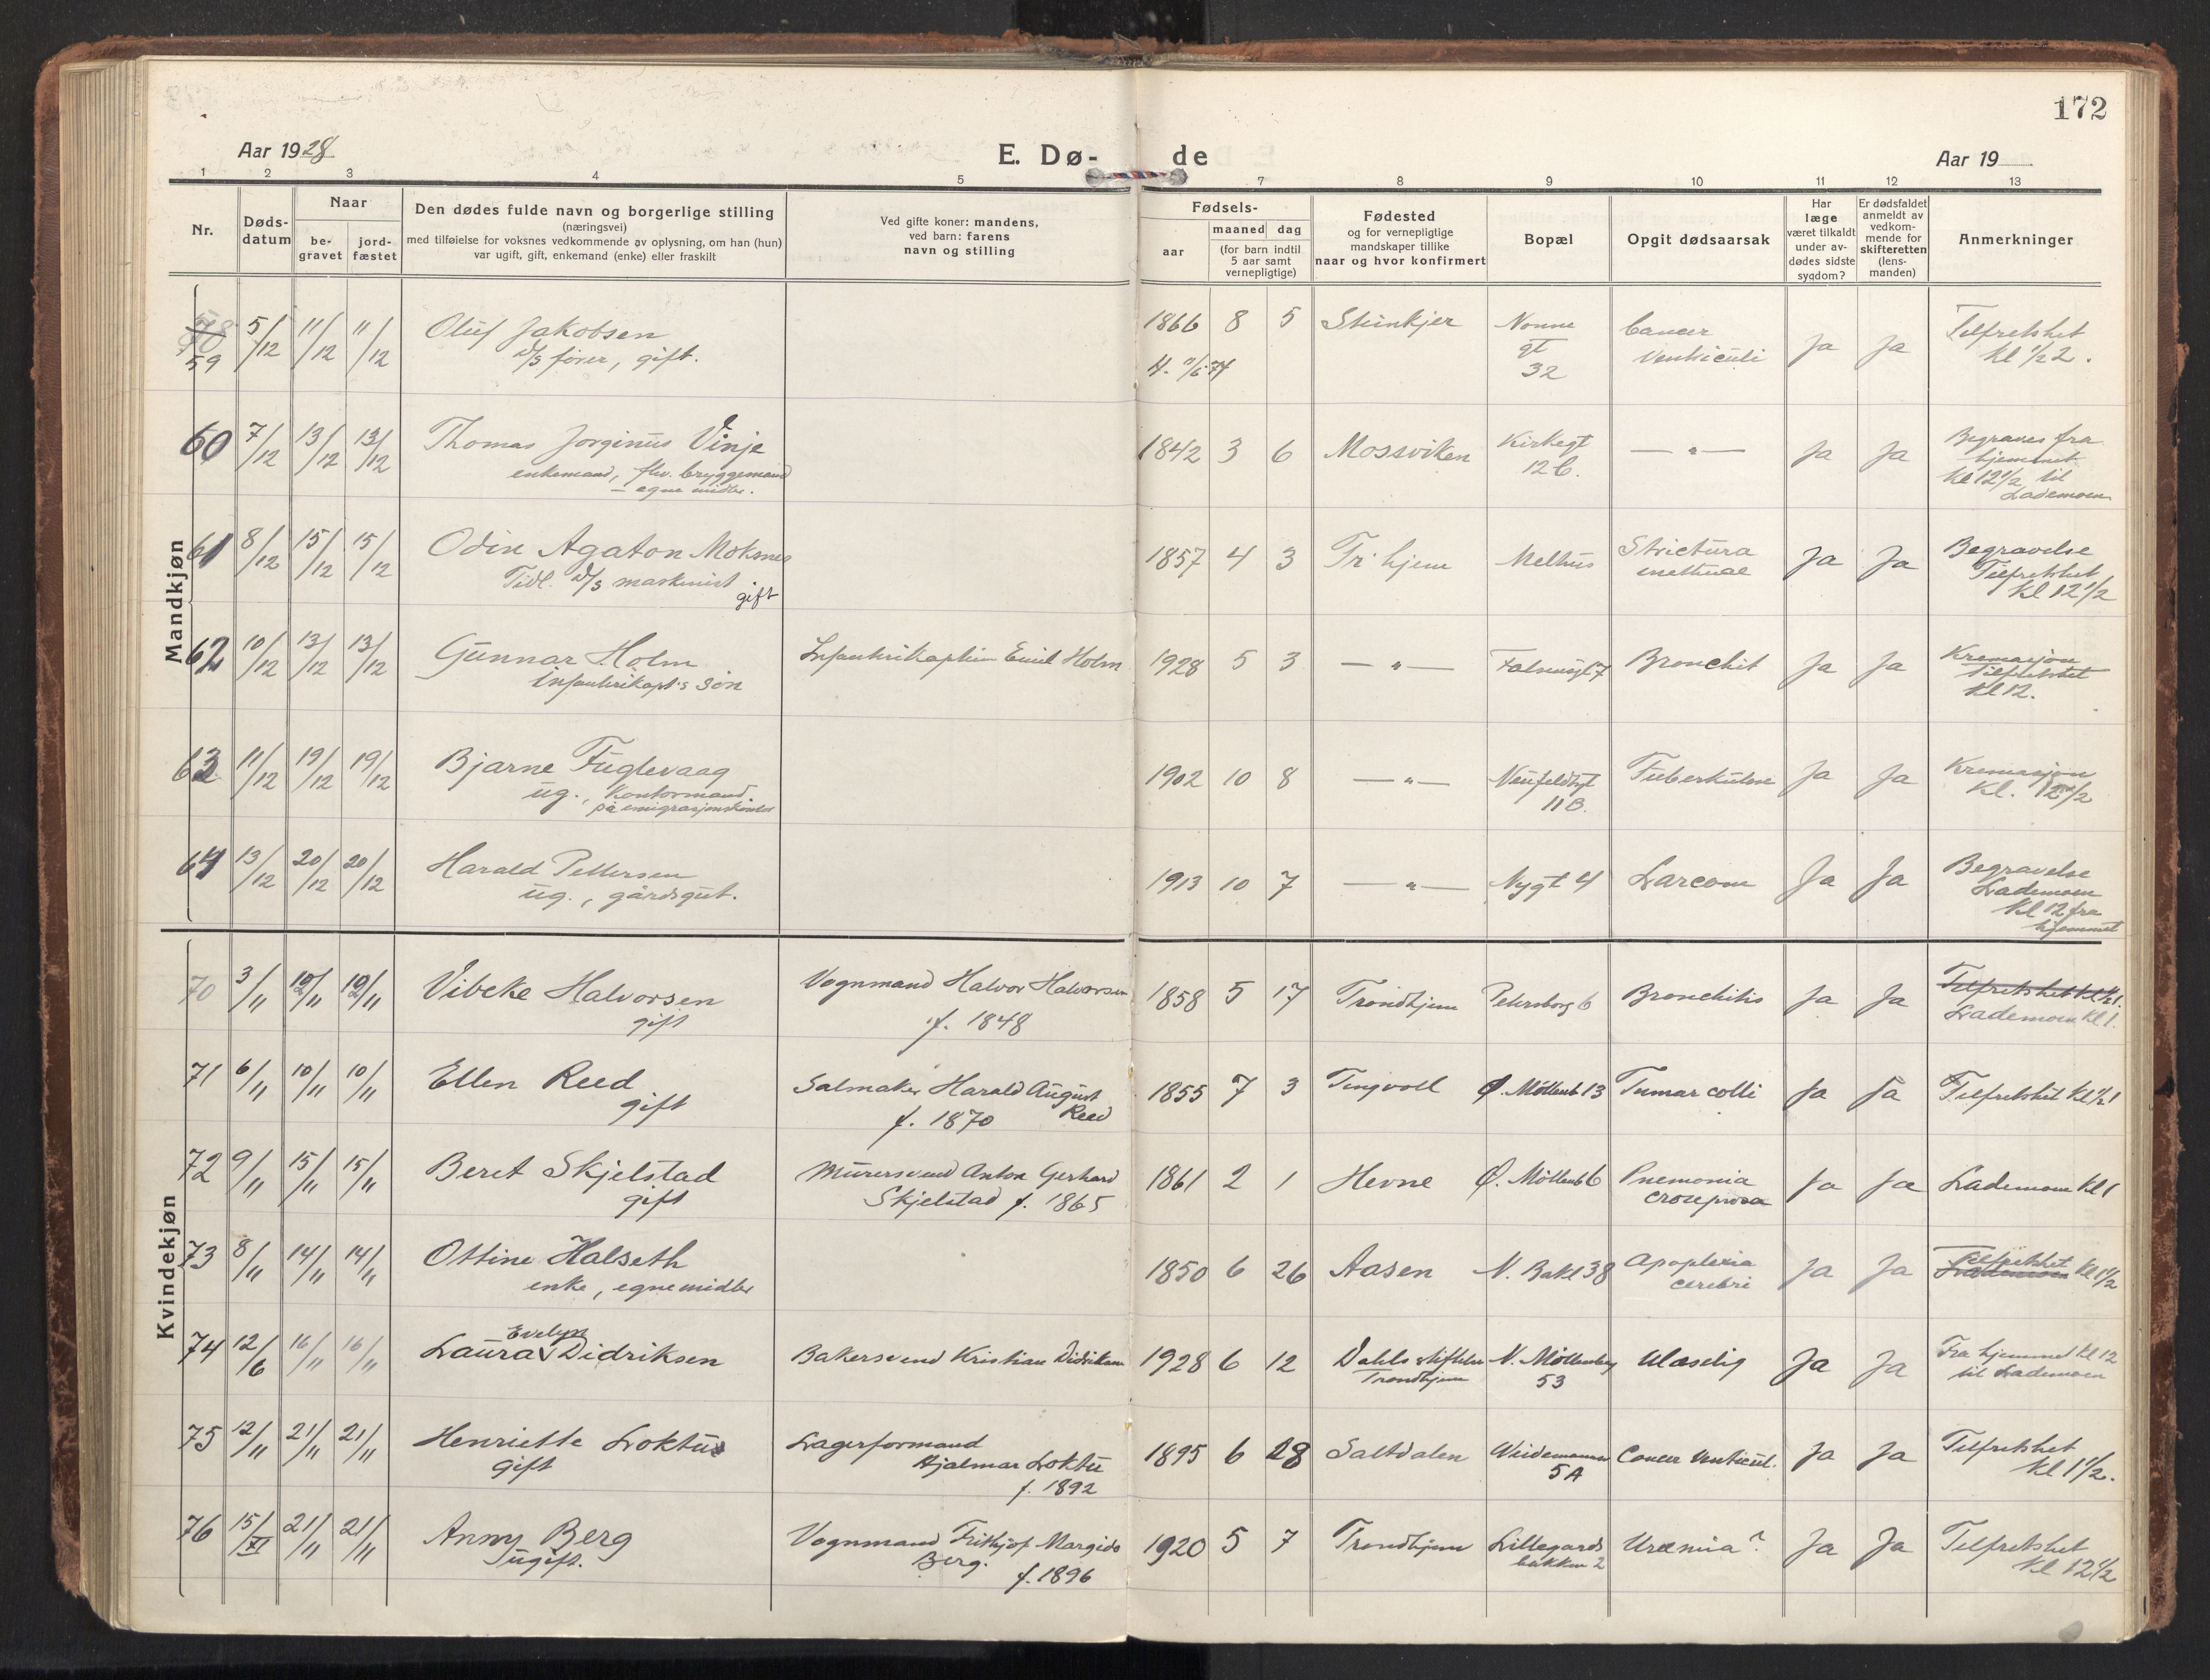 172
Aar 1928
E. Dø-
de
Aar 19
1 2 3 4 5 7 8 9 10 11 12 13
Nr.
Døds-
datum
Naar
be-
gravet
jord-
fæstet
Den dødes fulde navn og borgerlige stilling
(næringsvei)
med tilføielse for voksnes vedkommende av oplysning, om han (hun)
var ugift, gift, enkemand (enke) eller fraskilt
Ved gifte koner: mandens,
ved barn: farens
navn og stilling
Fødsels-
aar
maaned dag
(for barn indtil
5 aar samt
vernepligtige)
Fødested
og for vernepligtige
mandskaper tillike
naar og hvor konfirmert
Bopæl
Opgit dødsaarsak
Har
læge
været tilkaldt
under av-
dødes sidste
sygdom?
Er dødsfaldet
anmeldt av
vedkom-
mende for
skifteretten
(lens-
manden)
Anmerkninger
Mandkjøn
59 5/12 11/12 11/12 Oluf Jakobsen 1866 8 5 Stenkjer Nonne Cancer Ja Ja Tilfretshet
D/S fører, gift. gt Ventriculi Kl 1/2 2.
32
60 7/12 13/12 13/12 Thomas Jorginus Vinje 1842 3 6 Mossviken Kirkegt — " — Ja Ja Begraves fra
enkemand, fhv. bryggemand 12 b. hjemmet
— egne midler. Kl 12 1/2 til
Lademoen
61 8/12 15/12 15/12 Odin Agaton Moksnes 1857 4 3 Tr.hjem Melhus Strictura Ja Ja Begravelse
Tidl. D/S maskinist Tilfretshet
gift Kl 12 1/2
62 10/12 13/12 13/12 Gunnar Holm Infanterikaptein Emil Holm 1928 5 3 — " — Bronchit Ja Ja Kremasjon
Infanterikapt.s søn Tilfretshet
Kl 12.
63 11/12 19/12 19/12 Bjarne Fuglevaag 1902 10 8 — " — Neufeldtsgt Tuberkulose Ja Ja Kremasjon
ug., Kontormand 11 B. Kl. 12 1/2
på emigrasjonskontor
64 13/12 20/12 20/12 Harald Pettersen 1913 10 7 — " — Nygt 4 Sarcom Ja Ja Begravelse
ug., gårdsgut. Lademoen
Kl 12 fra
hjemmet
Kvindekjøn
70 3/11 Vibeke Halvorsen Vognmand Halvor Halvorsen 1858 5 17 Trondhjem Petersborg 6 Bronchitis Ja Ja Tilfretshet Kl 1/2 1.
gift f. 1848 Lademoen Kl 1.
71 6/11 10/11 10/11 Ellen Reed Salmaker Harald August 1855 7 3 Tingvoll Ø. Møllenb 13 Tumor colli Ja Ja Tilfretshet Kl 1/2 1
gift Reed
f. 1870
72 9/11 15/11 15/11 Beret Skjelstad Murersvend Anton Gerhard 1861 2 1 Hevne Ø. Møllenb 6 Pnemonia Ja Ja Lademoen Kl 1
gift Skjelstad f. 1865
73 8/11 14/11 14/11 Ottine Halseth 1850 6 26 Aasen N. Bakl 38 Apoplexia Ja Ja Tilfretshet Kl 1 1/2
enke, egne midler cerebri Lademoen
74 12/6 16/11 16/11 Laura Evelyn Didriksen Bakersvend Kristian Didriksen 1928 6 12 Dahls stiftelse N. Møllenberg Ulæselig Ja Ja Fra hjemmet Kl 12
Trondhjem 53 til Lademoen
75 12/11 21/11 21/11 Henriette Loktu Lagerformand 1895 6 28 Saltdalen Weidemannsv Cancer Ventricul. Ja Ja Tilfretshet
gift Hjalmar Loktu 5A Kl 1 1/2.
f. 1892
76 15/XI 21/11 21/11 Anny Berg Vognmand Frithjof Margido 1920 5 7 Trondhjem Lillegards Uræmia? Ja Ja Tilfretshet
ugift. Berg. bakken 2 Kl 12 1/2
f. 1896